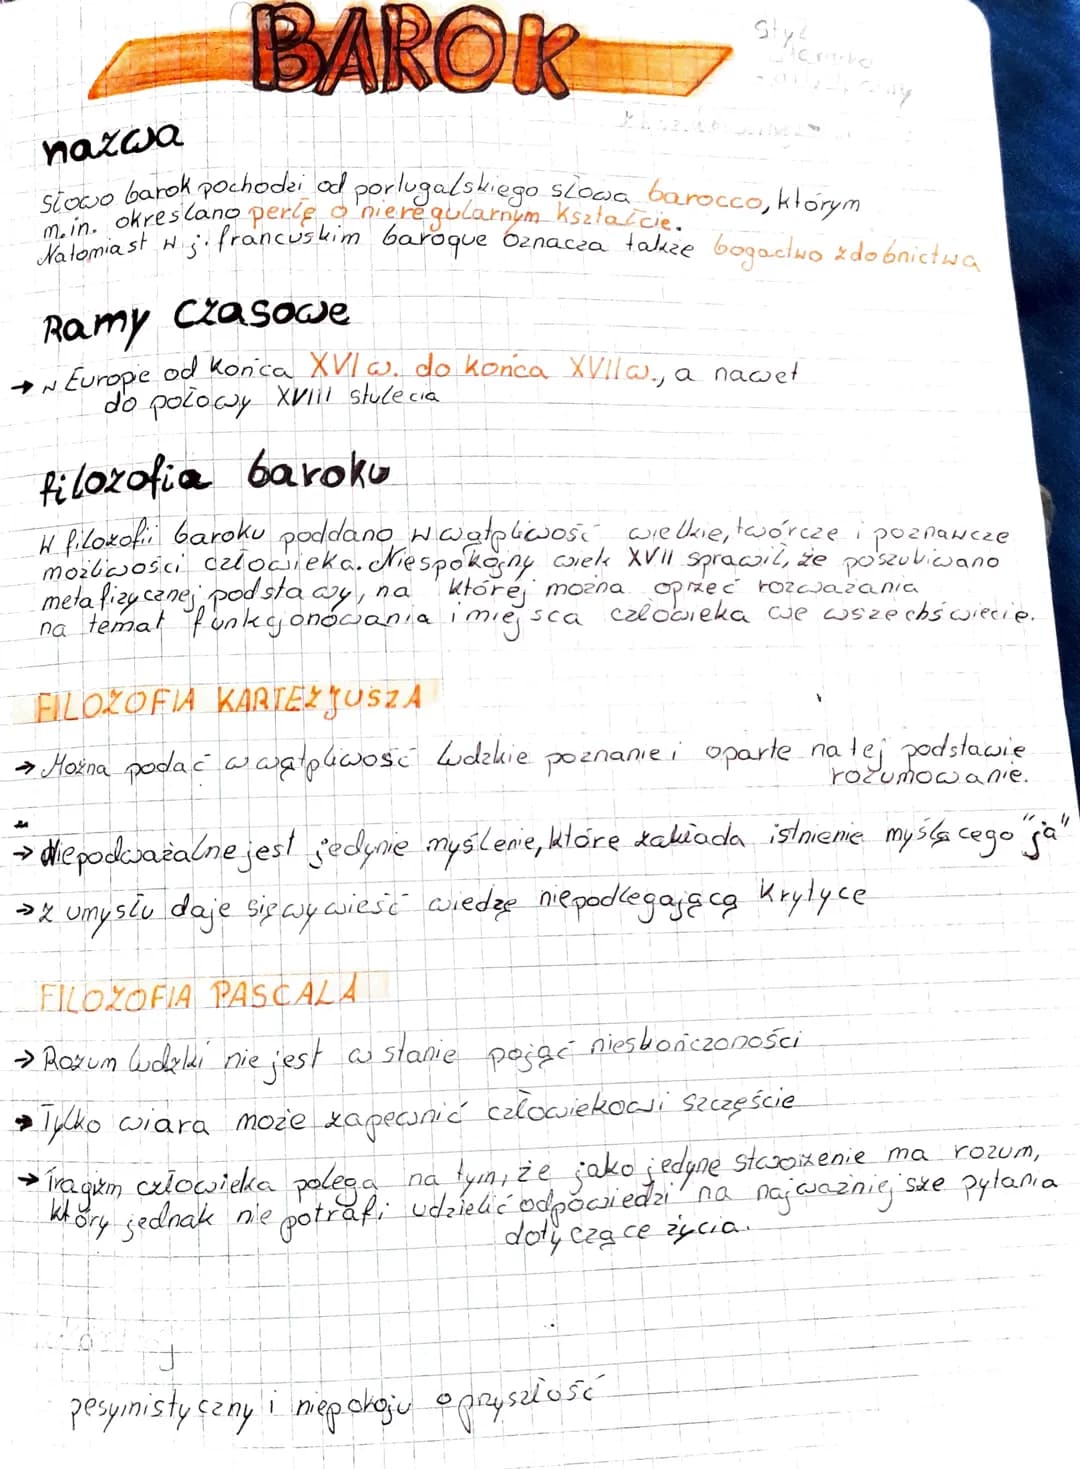 BAROK
Styl
nazwa
słowo barok pochodzi od portugalskiego słowa barocco, którym
m.in. określano perłę o nieregularnym kształcie.
Natomiast w j. francuskim baroque oznacza także bogactwo zdobnictwa
Ramy czasowe
→ W Europie od końca XVI w. do końca XVII w., a nawet
do połowy XVIII stulecia
filozofia baroku
W filozofii baroku poddano w wątpliwość wielkie, twórcze i poznawcze
możliwości człowieka. Niespokojny wiek XVII sprawił, że poszukiwano
metafizycznej podstawy, na której można oprzeć rozważania
na temat funkcjonowania i miejsca człowieka we wszechświecie.
FILOZOFIA KARTEZJUSZA
→ Można podać w wątpliwość ludzkie poznanie i oparte na tej podstawie
rozumowanie.
→ Niepodważalne jest jedynie myślenie, które zakłada istnienie myślącego "ja"
→ z umysłu daje się wywieść wiedzę niepodlegającą krytyce
FILOZOFIA PASCALA
→ Rozum ludzki nie jest w stanie pojąć nieskończoności
→ Tylko wiara może zapewnić człowiekowi szczęście
→ Tragizm człowieka polega na tym, że jako jedyne stworzenie ma rozum,
który jednak nie potrafi udzielić odpowiedzi na najważniejsze pytania
dotyczące życia.
pesymistyczny i niepokoju o przyszłość